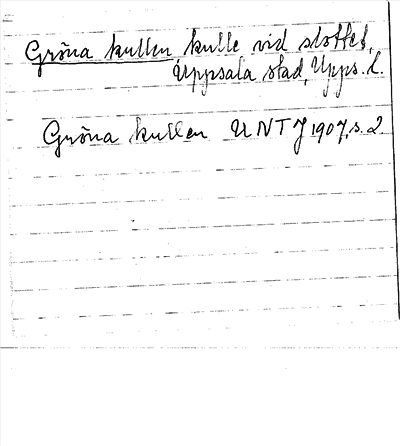 Gröna kullen kulle vid slottet,
Uppsala stad, Upps. l.
Gröna kullen UNT J 1907, s. 2.